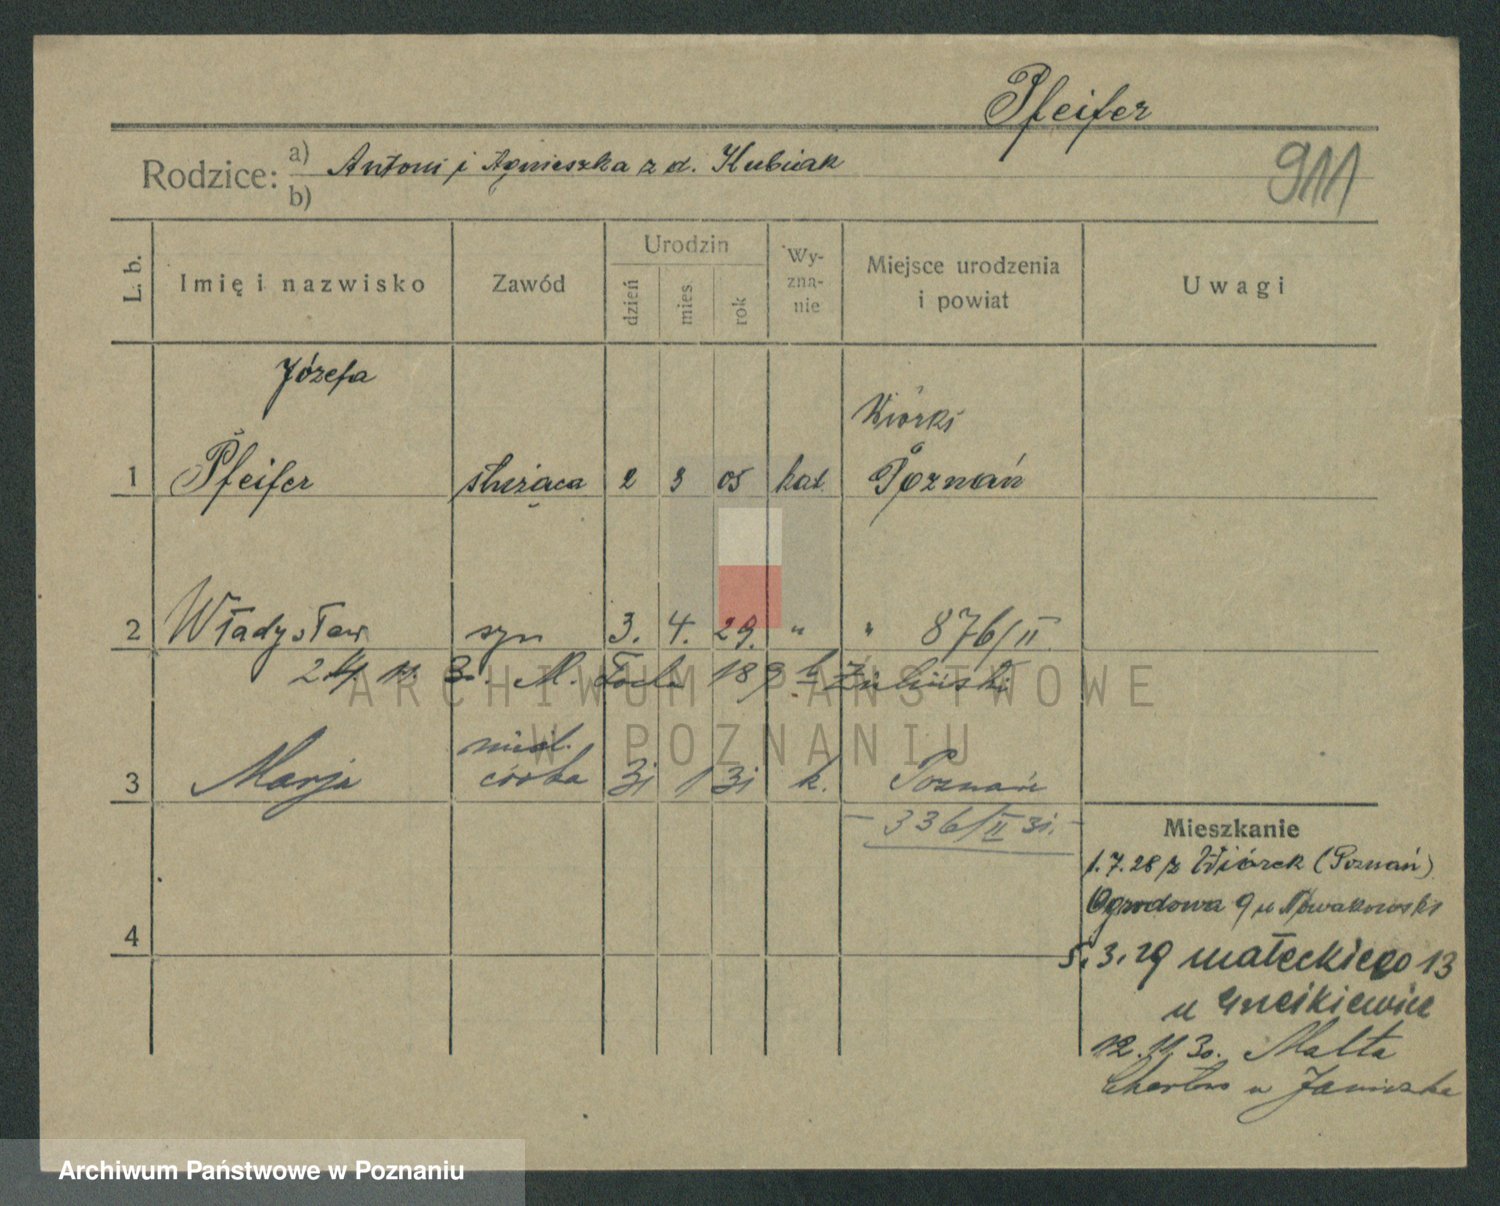 Pfeifer
Rodzice: a) Antoni i Agnieszka z d. Kubiak
b)
911
L. b. Imię i nazwisko Zawód Urodzin dzień mies. rok Wyzna-nie Miejsce urodzenia i powiat Uwagi
Józefa
Wiórki
1 Pfeifer służąca 2 3 05 kat. Poznań
2 Władysław syn 3. 4. 29. " " 876/II
24. 3. M. Focha 189
3 Marja córka 31 1 31 k. Poznań
336/II 31.
4
Mieszkanie
1.7.28 z Wiórek (Poznań)
Ogrodowa 9 u Nowakowski
5.3.29 Małeckiego 13
u
12.11.30. Malta
u Janiszka
ARCHIWUM PAŃSTWOWE
W POZNANIU
Archiwum Państwowe w Poznaniu